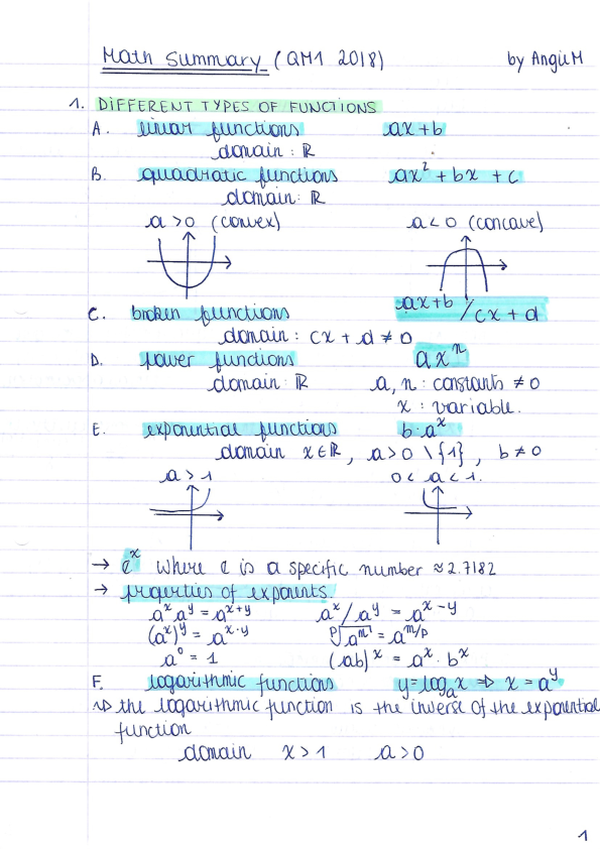 Math Summary (QM1 2018) by AngiiM
1. DIFFERENT TYPES OF FUNCTIONS
A. linear functions ax+b
domain : ℝ
B. quadratic functions ax² + bx + c
domain : ℝ
a > 0 (convex) a < 0 (concave)
C. broken functions ax+b / cx + d
domain : cx + d ≠ 0
D. power functions axⁿ
domain : ℝ a, n : constants ≠ 0
x : variable.
E. exponential functions b·aˣ
domain x ∈ ℝ, a>0 \ {1}, b ≠ 0
a > 1 0 < a < 1.
→ eˣ where e is a specific number ≈ 2.7182
→ properties of exponents.
aˣ aʸ = aˣ⁺ʸ aˣ / aʸ = aˣ⁻ʸ
(aˣ)ʸ = aˣ·ʸ ᵖ√aᵐ = a^m/p
a⁰ = 1 (ab)ˣ = aˣ · bˣ
F. logarithmic functions y = logₐx ⇒ x = aʸ
↳ the logarithmic function is the inverse of the exponential
function
domain x > 1 a > 0
1